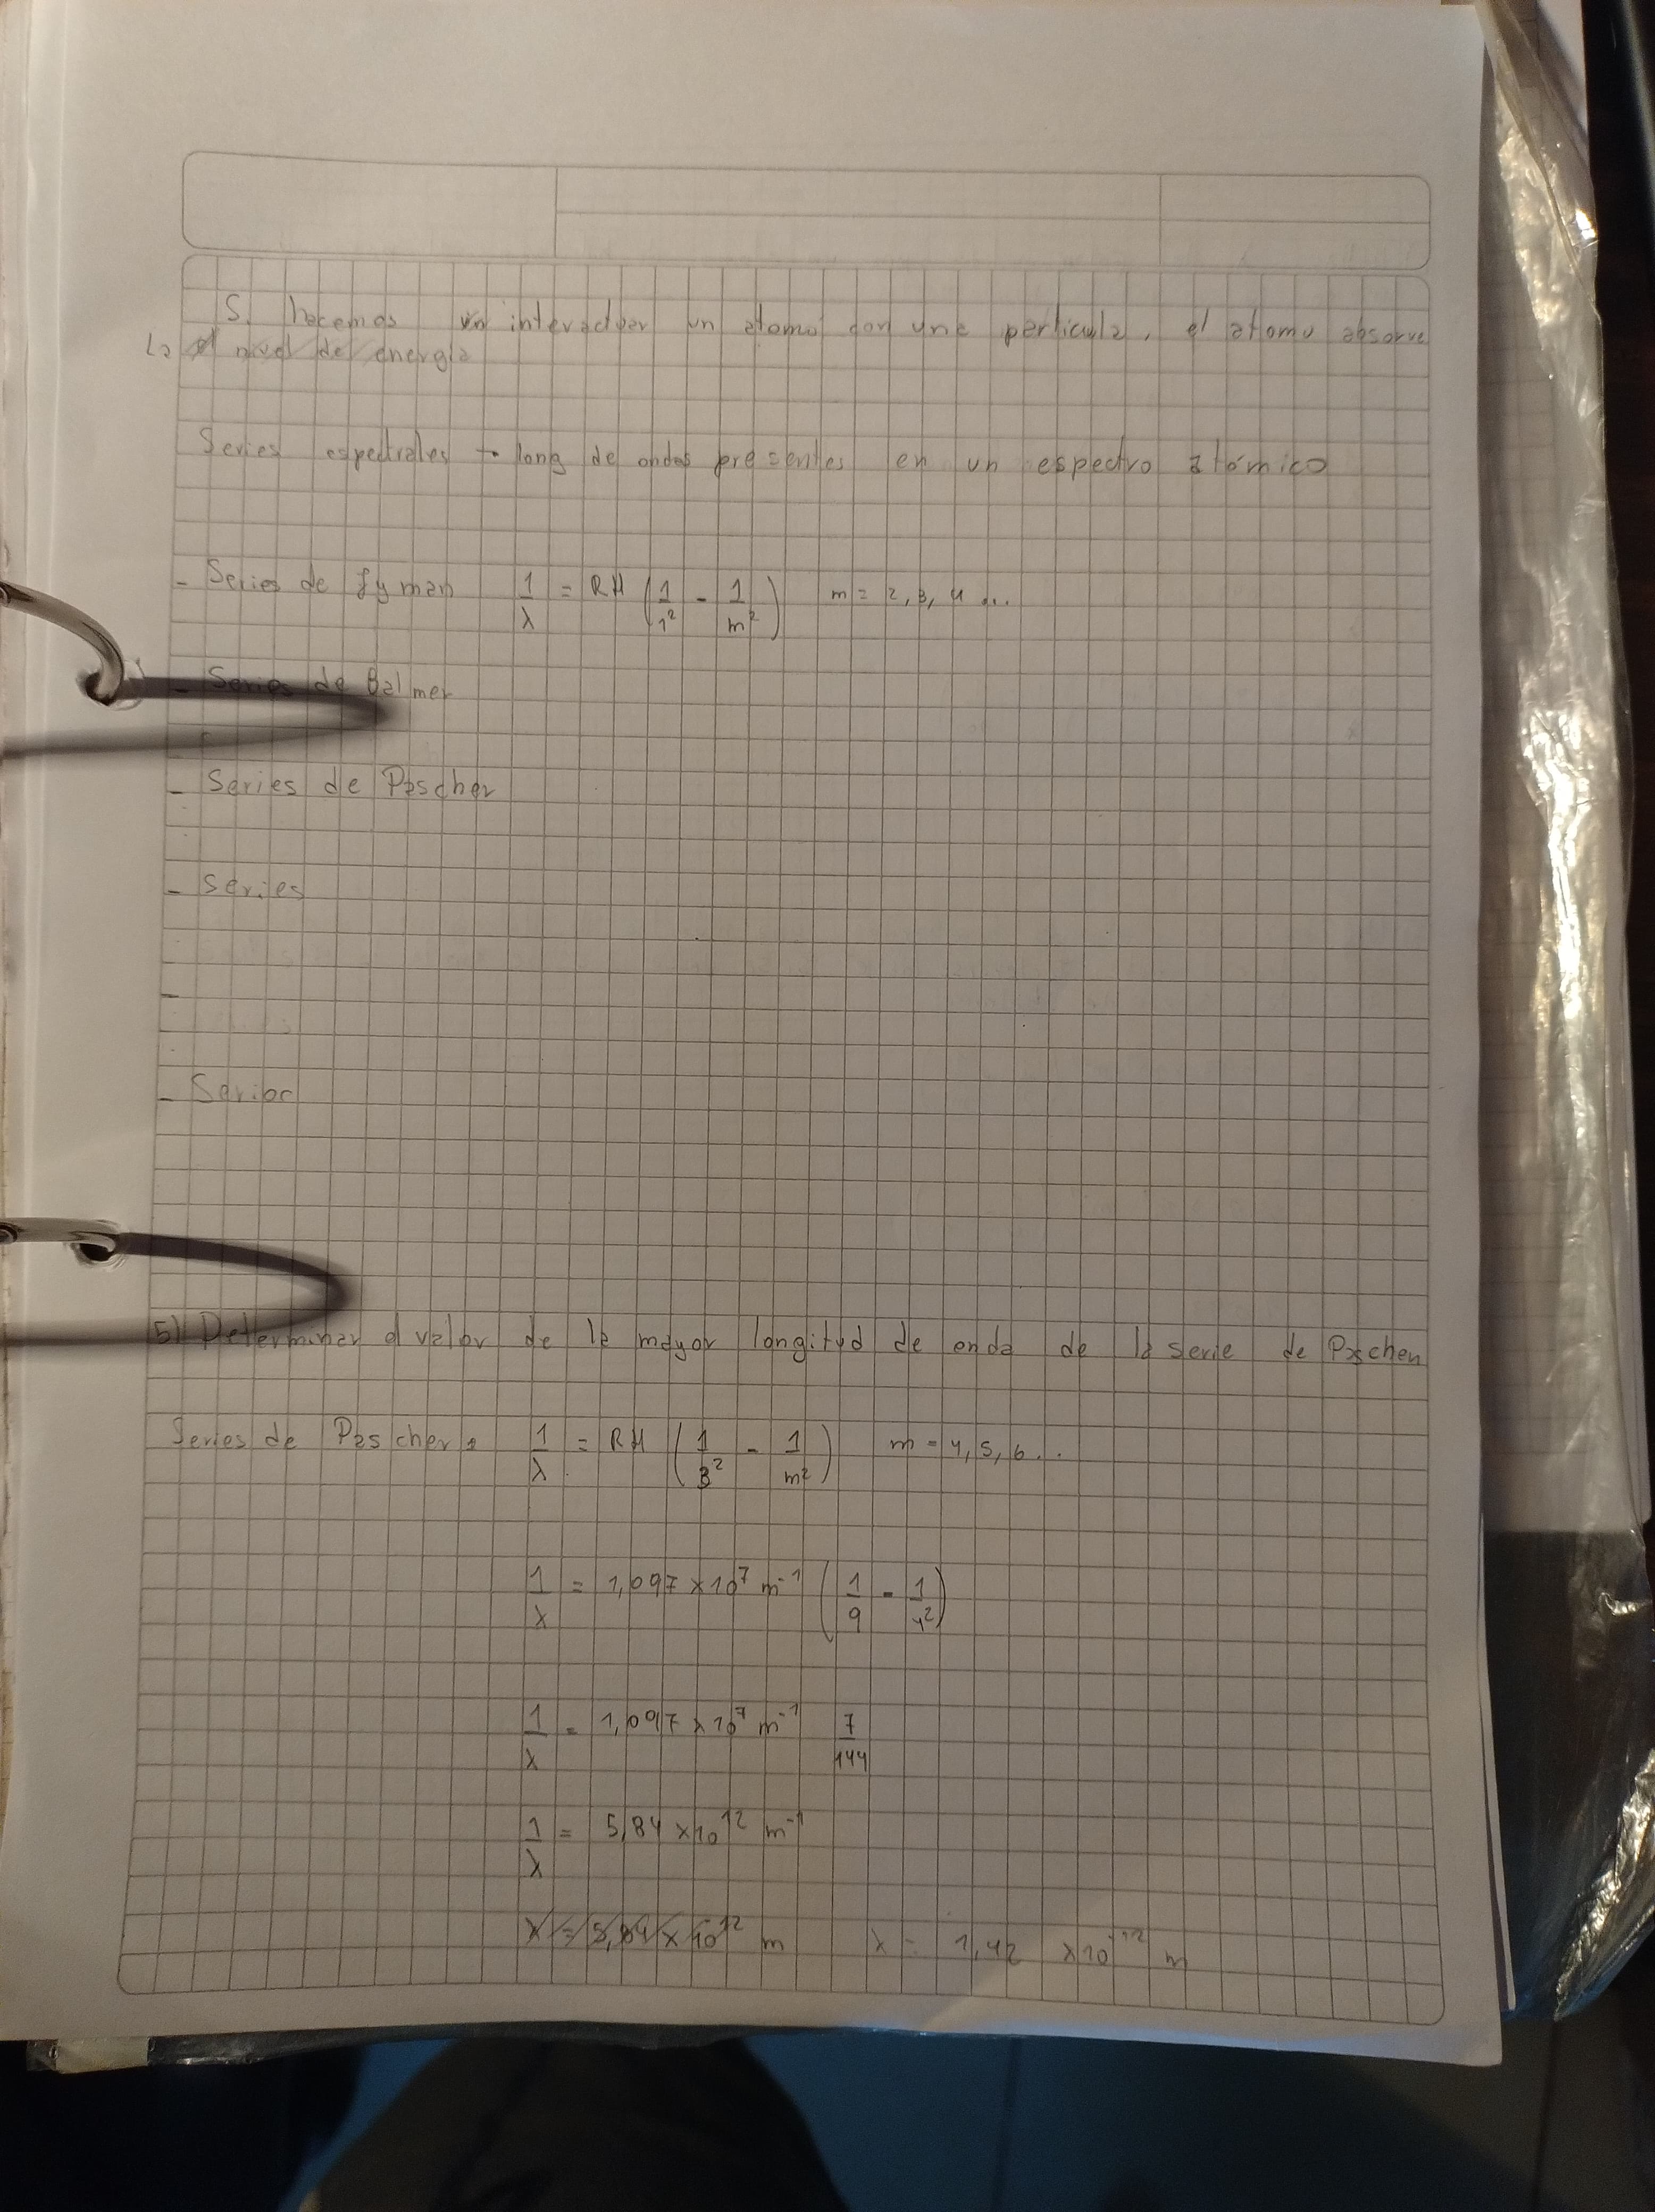 Si hacemos un interactuar un atomo con una particula, el atomo absorve
La el nivel de energia
Series espectrales → long de ondas presentes en un espectro atómico
- Series de Lyman 1/λ = RH (1/1² - 1/m²) m = 2, 3, 4 ...
- Series de Balmer
- Series de Paschen
- Series
-
- Series
5) Determinar el valor de la mayor longitud de onda de la serie de Paschen
Series de Paschen: 1/λ = RH (1/3² - 1/m²) m = 4, 5, 6...
1/λ = 1,097 × 10⁷ m⁻¹ (1/9 - 1/4²)
1/λ = 1,097 × 10⁷ m⁻¹ 7/144
1/λ = 5,84 × 10¹² m⁻¹
λ = 5,84 × 10¹² m λ = 1,42 × 10⁻¹² m